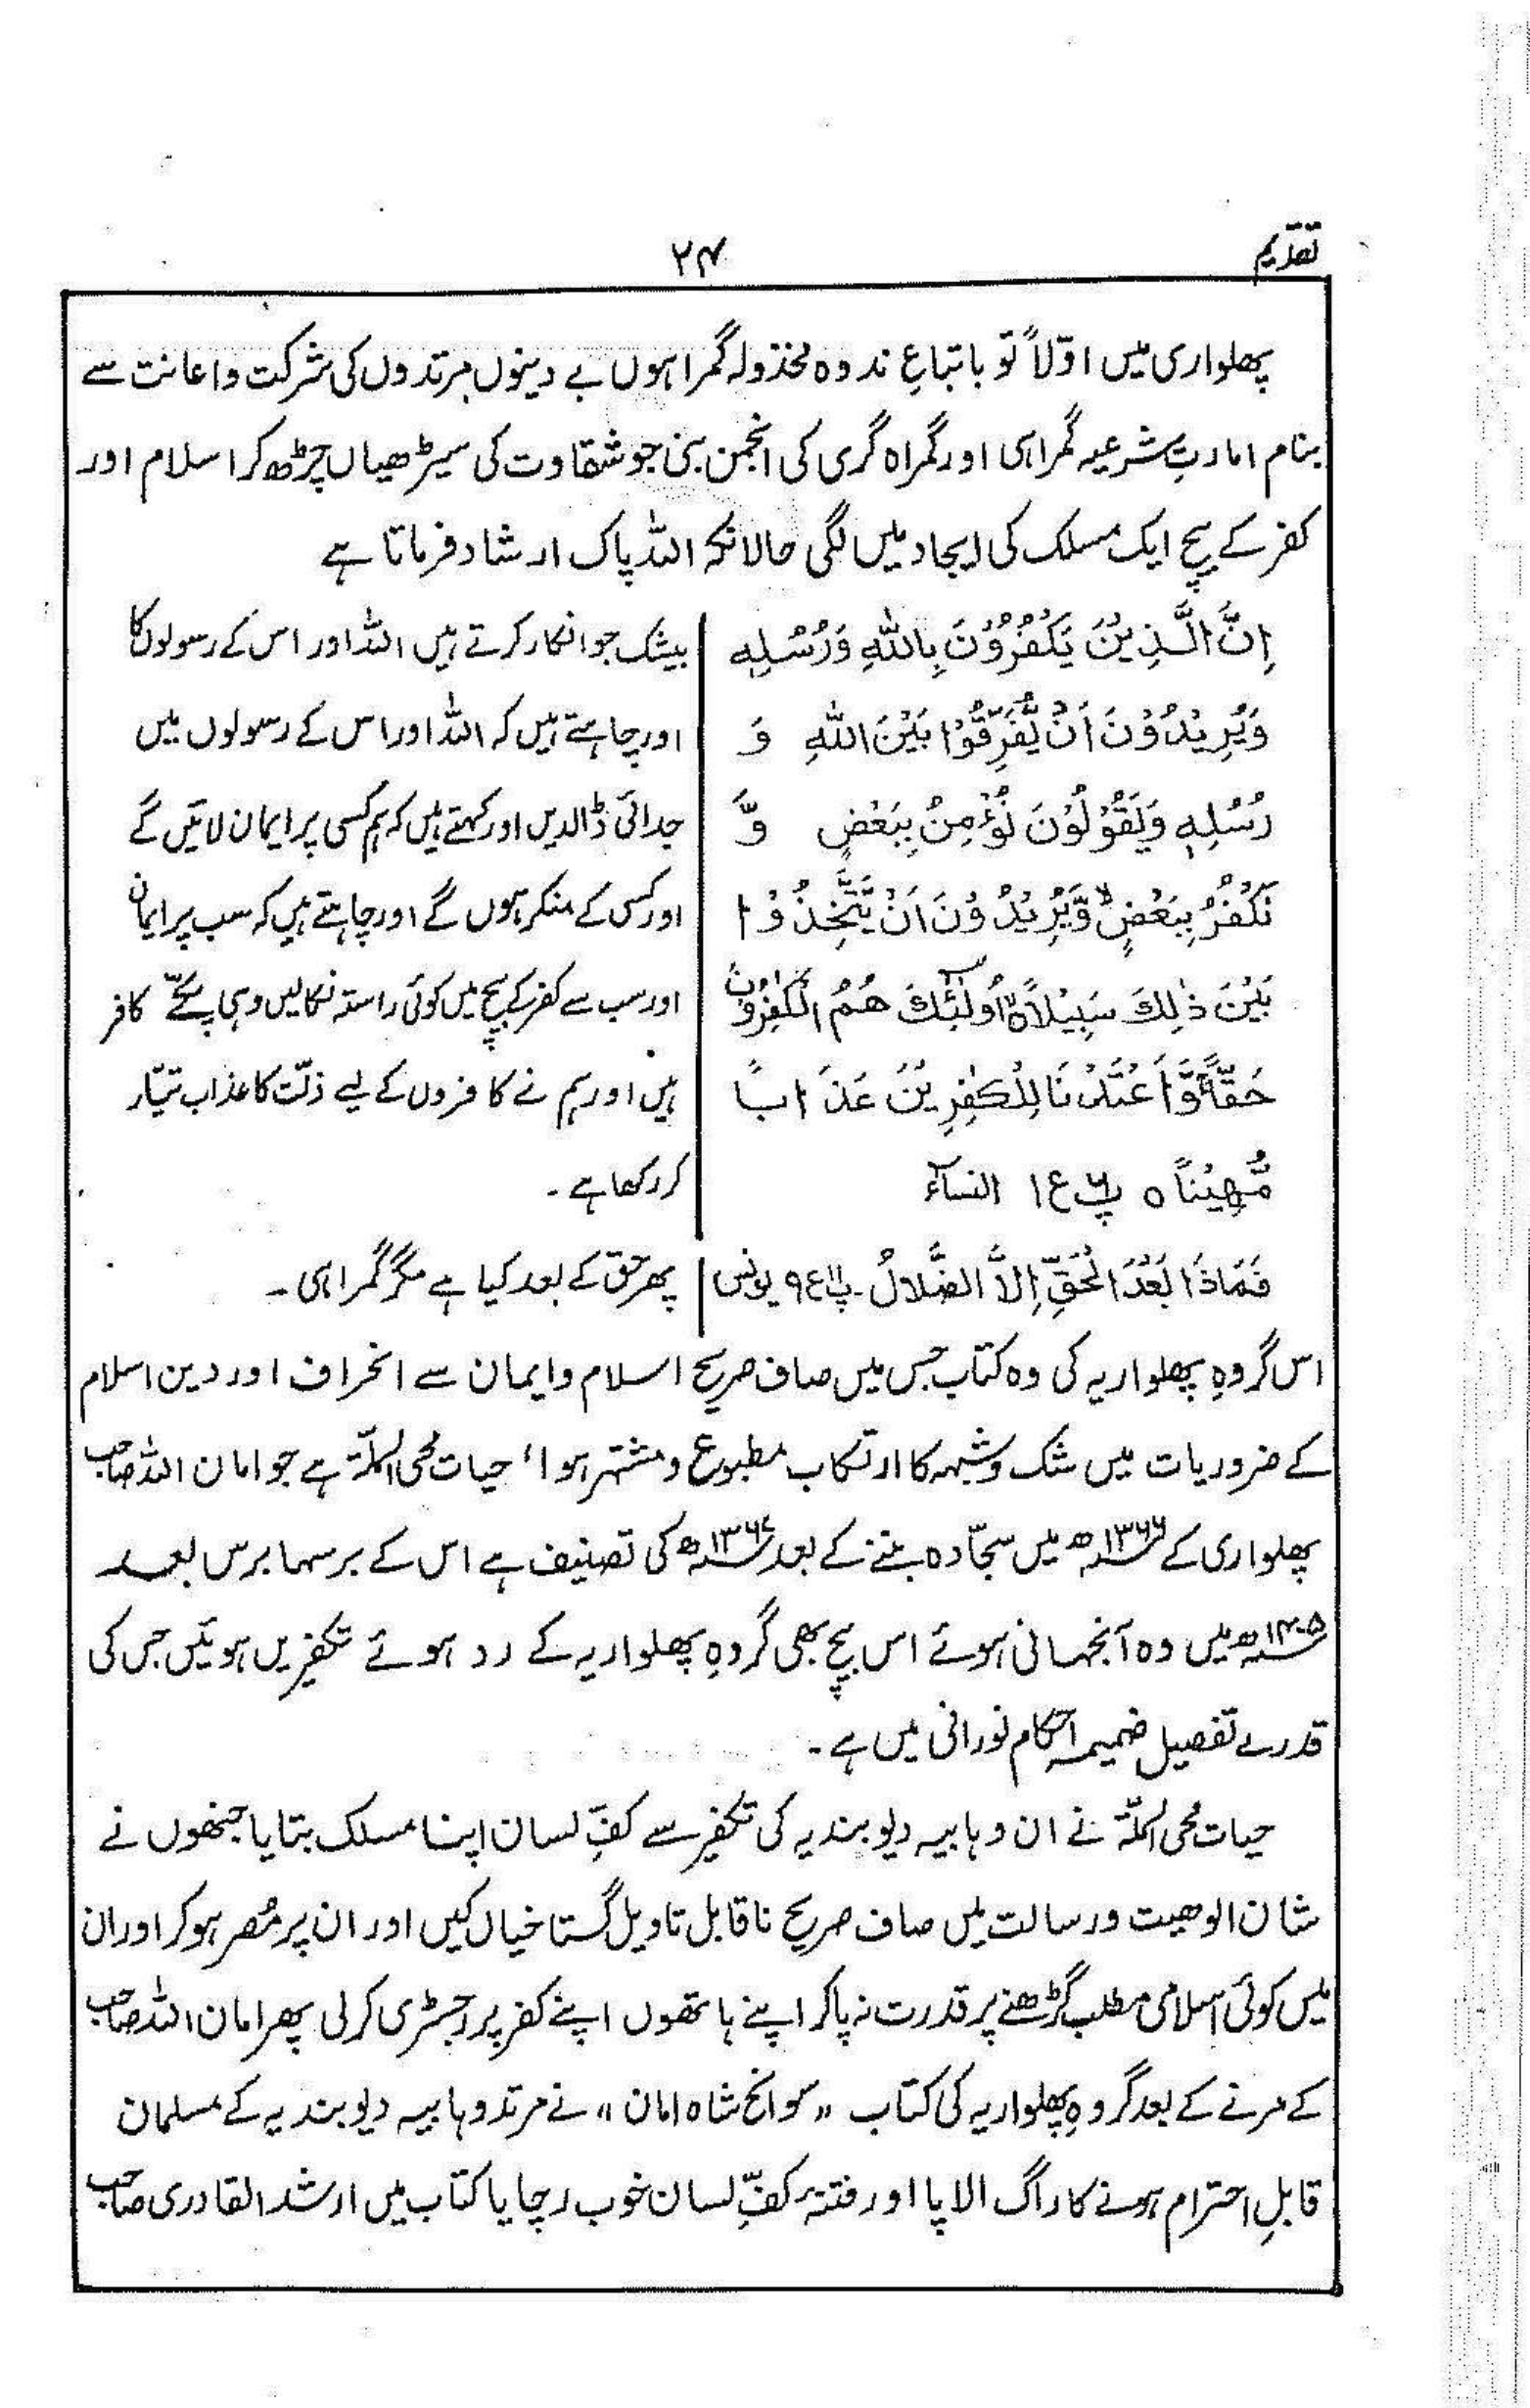 تقدیم
۲۴
پھلواری میں اوّلاً تو باتباعِ ندوہ مخذولہ گمراہوں بے دینوں مرتدوں کی شرکت و اعانت سے
بنام امارتِ شرعیہ گمراہی اور گمراہ گری کی انجمن بنی جو شقاوت کی سیڑھیاں چڑھ کر اسلام اور
کفر کے بیچ ایک مسلک کی ایجاد میں لگی حالانکہ اللہ پاک ارشاد فرماتا ہے
اِنَّ الَّذِیْنَ یَکْفُرُوْنَ بِاللّٰہِ وَرُسُلِہٖ
وَیُرِیْدُوْنَ اَنْ یُّفَرِّقُوْا بَیْنَ اللّٰہِ وَ
رُسُلِہٖ وَیَقُوْلُوْنَ نُؤْمِنُ بِبَعْضٍ وَّ
نَکْفُرُ بِبَعْضٍ ۙ وَّیُرِیْدُوْنَ اَنْ یَّتَّخِذُوْا
بَیْنَ ذٰلِکَ سَبِیْلًا ۙ اُولٰٓئِکَ ھُمُ الْکٰفِرُوْنَ
حَقًّا ۚ وَّاَعْتَدْنَا لِلْکٰفِرِیْنَ عَذَابًا
مُّھِیْنًا ٥ پ۶ ع۱ النسآء
بیشک جو انکار کرتے ہیں اللہ اور اس کے رسولوں کا
اور چاہتے ہیں کہ اللہ اور اس کے رسولوں میں
جدائی ڈالدیں اور کہتے ہیں کہ ہم کسی پر ایمان لائیں گے
اور کسی کے منکر ہوں گے اور چاہتے ہیں کہ سب پر ایمان
اور سب سے کفر کے بیچ میں کوئی راستہ نکالیں وہی پکّے کافر
ہیں اور ہم نے کافروں کے لیے ذلّت کا عذاب تیّار
کر رکھا ہے ۔
فَمَاذَا بَعْدَ الْحَقِّ اِلَّا الضَّلٰلُ ۔ پ۱۱ ع۹ یونس | پھر حق کے بعد کیا ہے مگر گمراہی ۔
اس گروہِ پھلواریہ کی وہ کتاب جس میں صاف صریح اسلام و ایمان سے انحراف اور دین اسلام
کے ضروریات میں شک و شبہہ کا ارتکاب مطبوع و مشتہر ہوا ' حیات محی الملّۃ ہے جو امان اللہ صاحب
پھلواری کے ۱۳۶۶ھ میں سجّادہ بننے کے بعد ۱۳۶۷ھ کی تصنیف ہے اس کے برسہا برس بعد
۱۴۰۵ھ میں وہ آنجہانی ہوئے اس بیچ بھی گروہِ پھلواریہ کے رد ہوئے تکفیریں ہوئیں جس کی
قدرے تفصیل ضمیمہ احکام نورانی میں ہے ۔
حیات محی الملّۃ نے ان وہابیہ دیوبندیہ کی تکفیر سے کفِّ لسان اپنا مسلک بتایا جنھوں نے
شان الوہیت و رسالت میں صاف صریح ناقابل تاویل گستاخیاں کیں اور ان پر مُصر ہوکر اور ان
میں کوئی اسلامی مطلب گڑھنے پر قدرت نہ پاکر اپنے ہاتھوں اپنے کفر پر رجسٹری کرلی پھر امان اللہ صاحب
کے مرنے کے بعد گروہِ پھلواریہ کی کتاب „سوانح شاہ امان" نے مرتد وہابیہ دیوبندیہ کے مسلمان
قابلِ احترام ہونے کا راگ الاپا اور فتنۂ کفِّ لسان خوب رچایا کتاب میں ارشد القادری صاحب